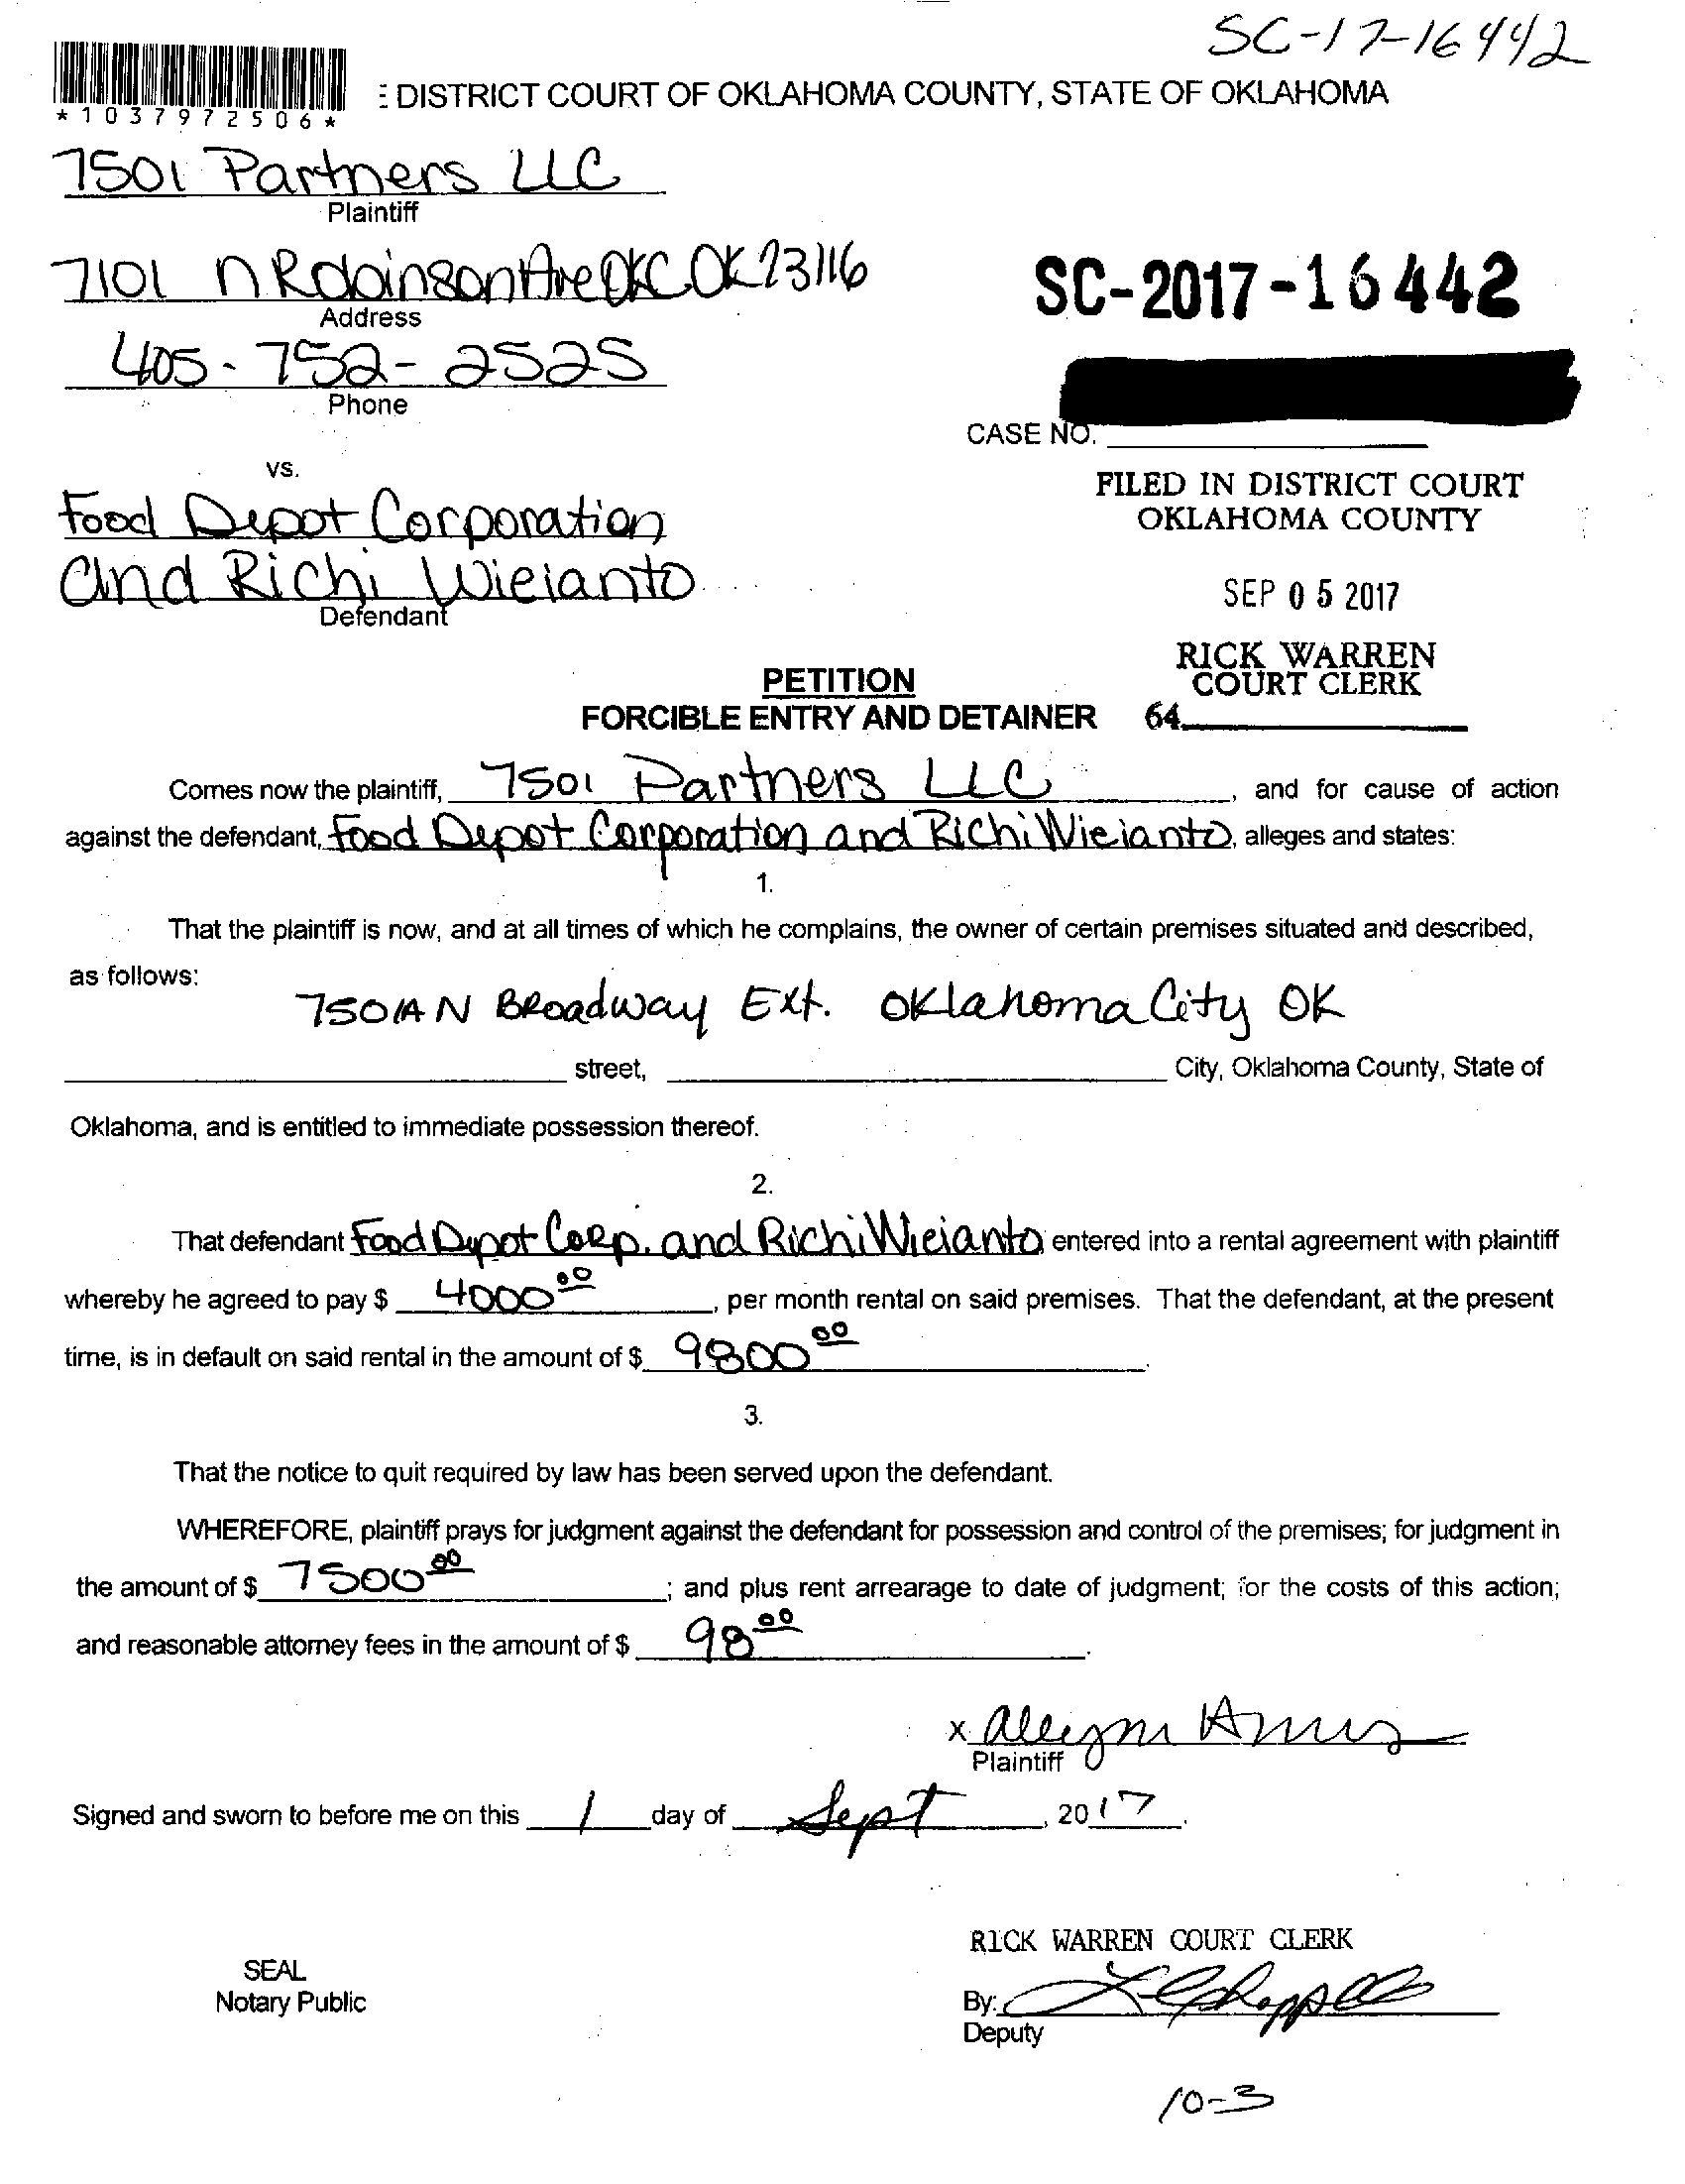 SC-17-16442
*1037972506*
: DISTRICT COURT OF OKLAHOMA COUNTY, STATE OF OKLAHOMA
7501 Partners LLC
Plaintiff
7101 N Robinson Ave OKC OK 73116
Address
SC-2017-16442
405-752-2525
Phone
CASE NO.
vs.
FILED IN DISTRICT COURT
OKLAHOMA COUNTY
Food Depot Corporation
and Richi Wieianto
Defendant
SEP 05 2017
RICK WARREN
COURT CLERK
PETITION
FORCIBLE ENTRY AND DETAINER
64
Comes now the plaintiff, 7501 Partners LLC, and for cause of action
against the defendant, Food Depot Corporation and Richi Wieianto, alleges and states:
1.
That the plaintiff is now, and at all times of which he complains, the owner of certain premises situated and described,
as follows:
7501A N Broadway Ext. Oklahoma City OK
street, City, Oklahoma County, State of
Oklahoma, and is entitled to immediate possession thereof.
2.
That defendant Food Depot Corp. and Richi Wieianto entered into a rental agreement with plaintiff
whereby he agreed to pay $ 4000 00, per month rental on said premises. That the defendant, at the present
time, is in default on said rental in the amount of $ 9800 00.
3.
That the notice to quit required by law has been served upon the defendant.
WHEREFORE, plaintiff prays for judgment against the defendant for possession and control of the premises; for judgment in
the amount of $ 7500 00; and plus rent arrearage to date of judgment; for the costs of this action;
and reasonable attorney fees in the amount of $ 98 00.
x
Plaintiff
Signed and sworn to before me on this 1 day of Sept, 2017.
RICK WARREN COURT CLERK
SEAL
Notary Public
By:
Deputy
10-3